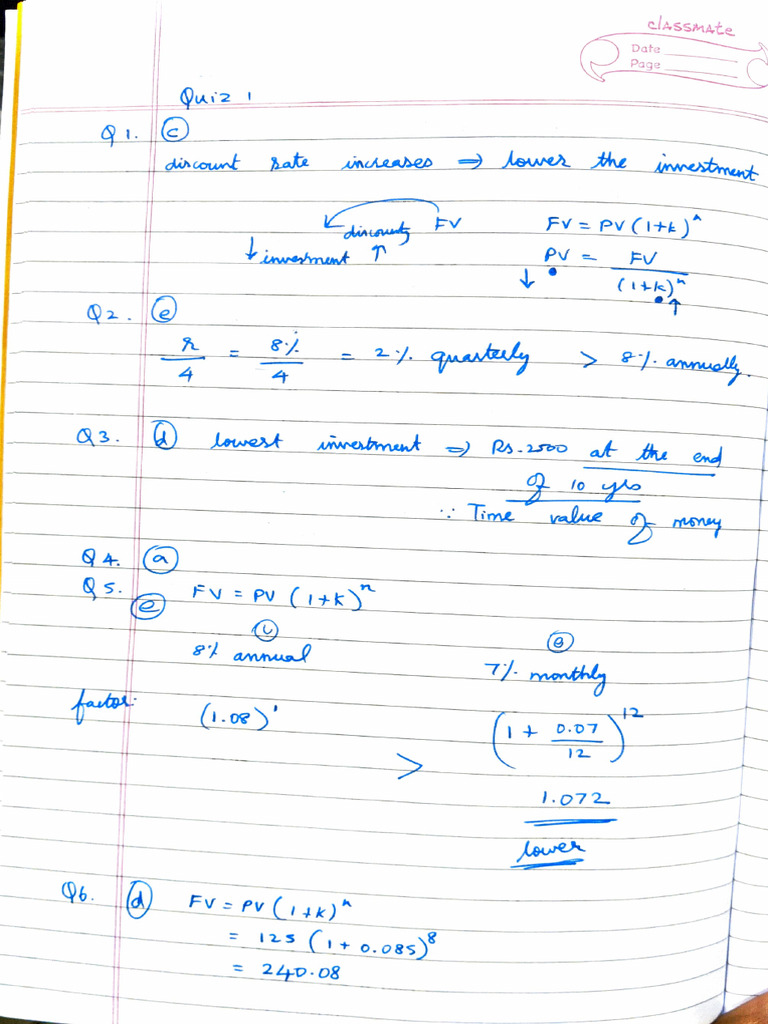 classmate
Date
Page
Quiz 1
Q1. (c)
discount rate increases ⇒ lower the investment
discounts FV
↓ investment ↑
FV = PV(1+k)^n
↓ PV = FV / (1+k)^n ↑
Q2. (e)
r/4 = 8%/4 = 2% quarterly > 8% annually.
Q3. (d) lowest investment ⇒ Rs.2500 at the end
of 10 yrs
∵ Time value of money
Q4. (a)
Q5. (e) FV = PV (1+k)^n
8% annual
(e)
7% monthly
factor: (1.08)^1 > (1 + 0.07/12)^12
1.072
lower
Q6. (d) FV = PV(1+k)^n
= 125 (1+0.085)^8
= 240.08